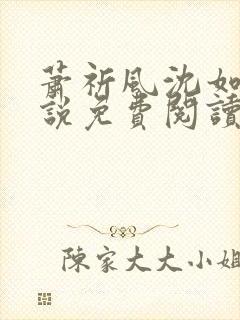 蕭祈風沈如
說免費閱讀
陳家大大小姐